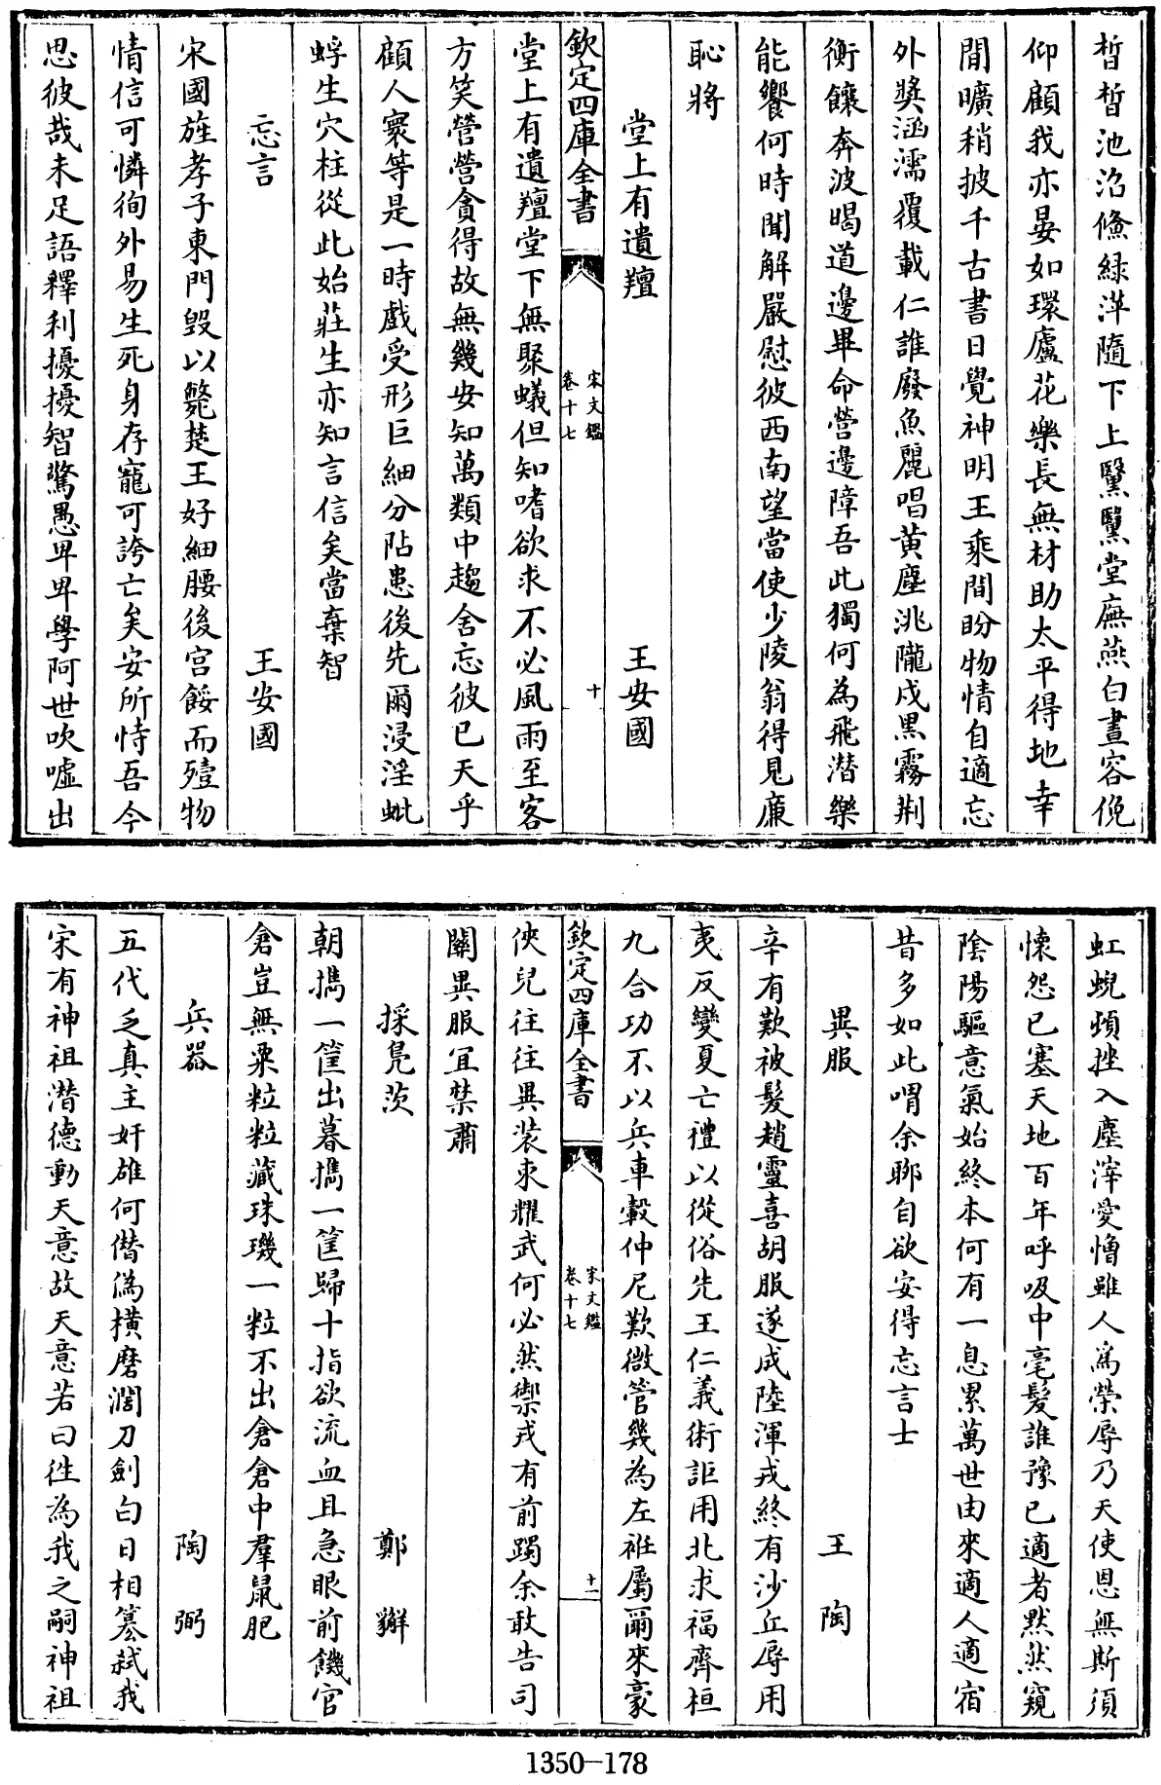 晳晳池滔鯈緑萍隨下上黳黳堂廡燕白晝容俛
仰顧我亦晏如環廬花樂長無材助太平得地幸
閒曠稍披千古書日覺神明王乘間盼物情自適忘
外奬涵濡覆載仁誰廢魚麗唱黄塵洮隴戍黑霧荆
衡饟奔波暍道邊畢命營邊障吾此獨何為飛潛樂
能饗何時聞解嚴慰彼西南望當使少陵翁得見廉
恥將
堂上有遺羶 王安國
欽定四庫全書 宋文鑑 卷十七 十
堂上有遺羶堂下無聚蟻但知嗜欲求不必風雨至客
方笑營營貪得故無幾安知萬類中趨舍忘彼已天乎
顧人寰等是一時戲受形巨細分阽患後先爾浸淫蚍
蜉生穴柱從此始莊生亦知言信矣當棄智
忘言 王安國
宋國旌孝子東門毁以斃楚王好細腰後宫餒而殪物
情信可憐徇外易生死身存寵可誇亡矣安所恃吾今
思彼哉未足語釋利擾擾智驚愚卑卑學阿世吹嘘出
虹蜺頓挫入塵滓愛憎雖人為榮辱乃天使恩無斯須
懐怨已塞天地百年呼吸中毫髮誰豫已適者黙然窺
陰陽驅意氣始終本何有一息累萬世由來適人適宿
昔多如此喟余聊自欲安得忘言士
異服 王陶
辛有歎被髮趙靈喜胡服遂成陸渾戎終有沙丘辱用
夷反變夏亡禮以從俗先王仁義術詎用北求福齊桓
九合功不以兵車轂仲尼歎微管幾為左袵屬爾來豪
俠兒往往異装束耀武何必然禦戎有前躅余敢告司
關異服宜禁肅
採鳬茨 鄭獬
朝擕一筐出暮擕一筐歸十指欲流血且急眼前饑官
倉豈無粟粒粒藏珠璣一粒不出倉倉中羣鼠肥
兵器 陶弼
五代乏真主奸雄何僭偽横磨濶刀劍白日相簒弑我
宋有神祖潜德動天意故天意若曰徃為我之嗣神祖
1350—178